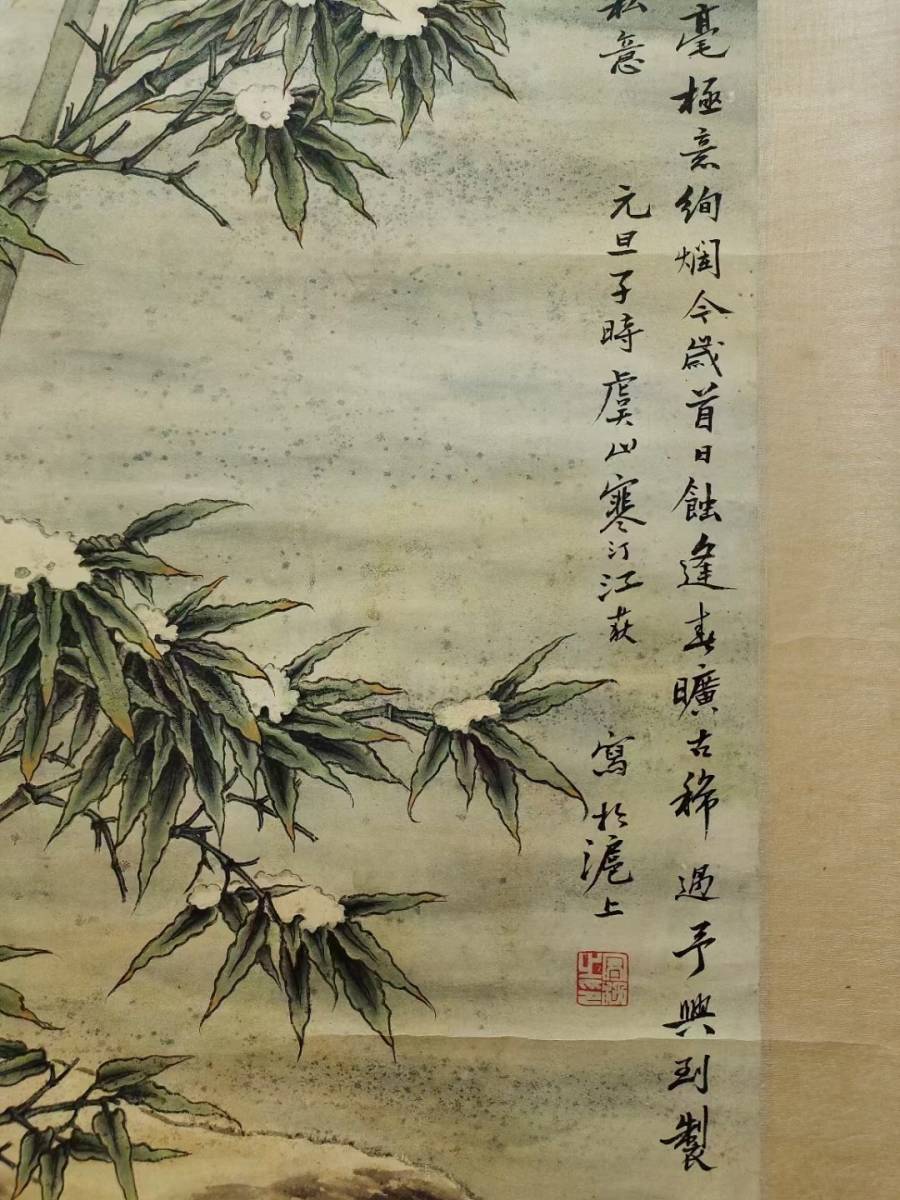 毫極意絢爛今歲首日蝕逢春曠古稀遇予興到製
私意 元旦子時虞山寒汀江荻 寫於滬上